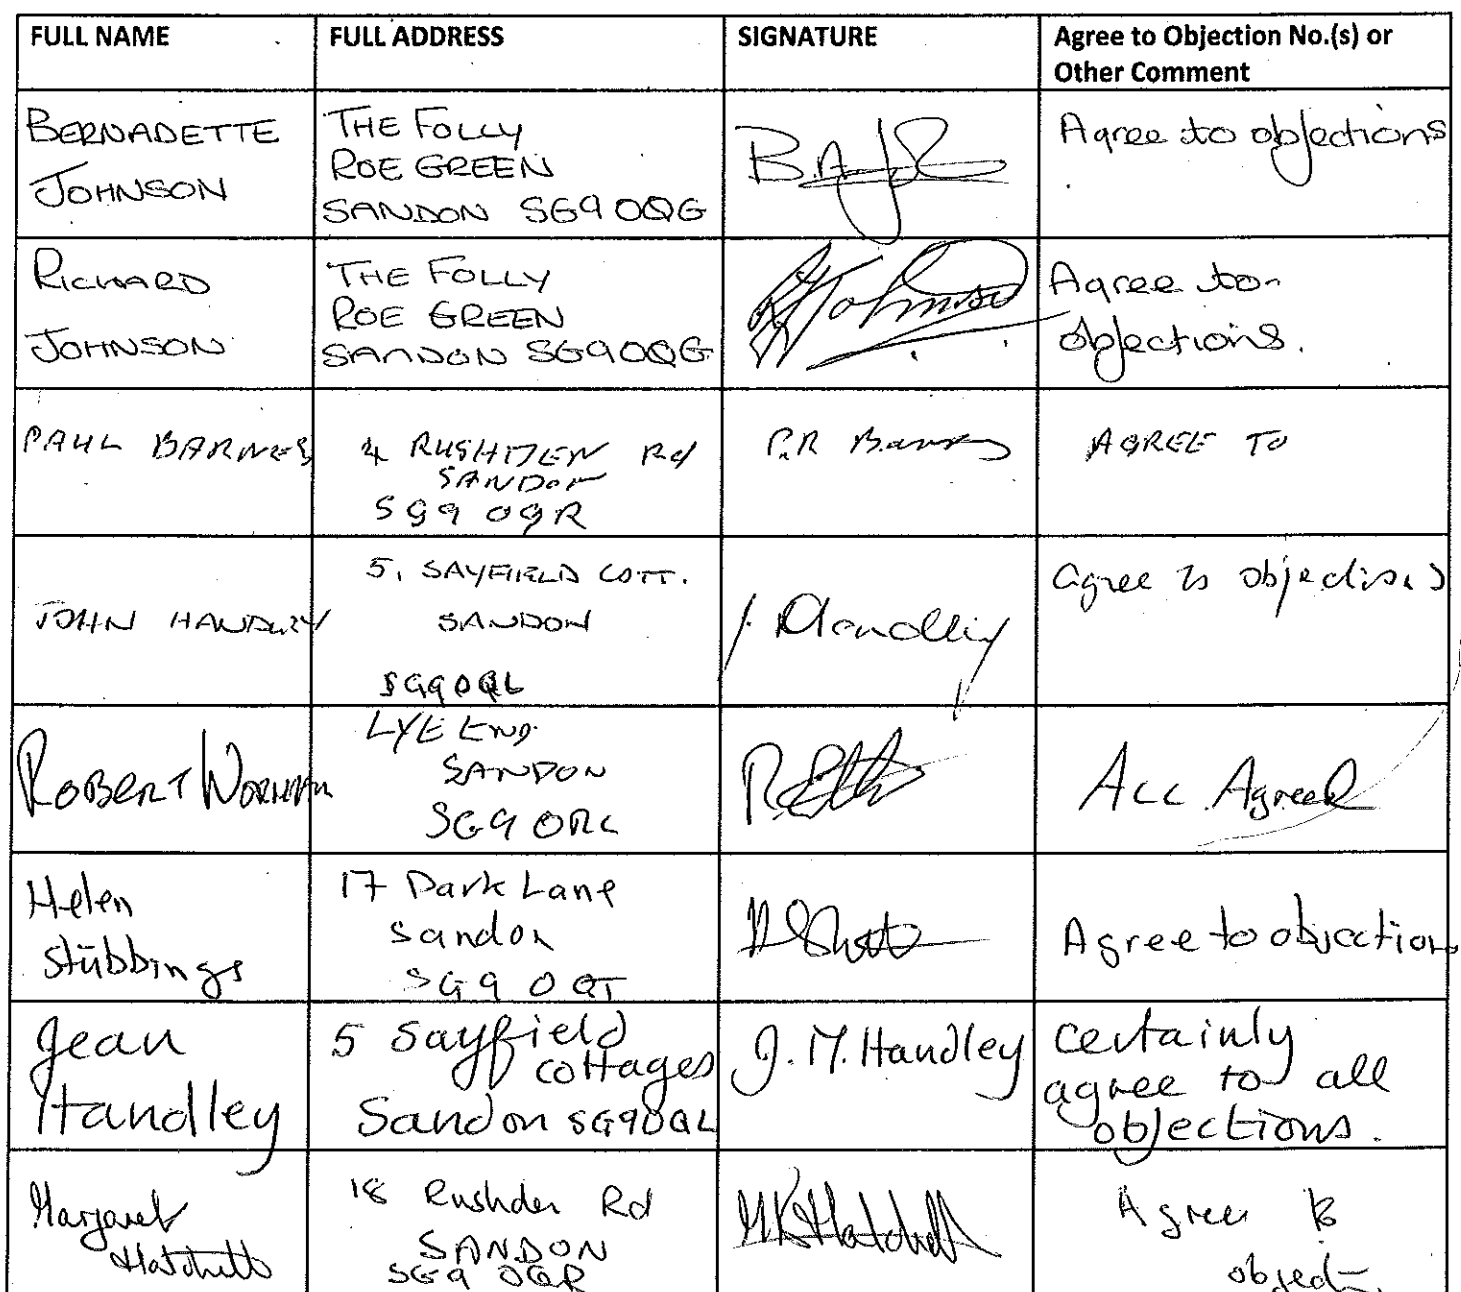 FULL NAME FULL ADDRESS SIGNATURE Agree to Objection No.(s) or
Other Comment
BERNADETTE
JOHNSON
THE FOLLY
ROE GREEN
SANDON SG9 0QG
B.A.
Agree to objections
RICHARD
JOHNSON
THE FOLLY
ROE GREEN
SANDON SG9 0QG
Johnson
Agree to
objections.
PAUL BARNES
4 RUSHDEN Rd
SANDON
SG9 0QR
P.R Barnes
AGREE TO
JOHN HANDLEY
5, SAYFIELD COTT.
SANDON
SG9 0QL
J. Handley
agree to objections
ROBERT
LYE END
SANDON
SG9 0RL
R.
ALL Agreed
Helen
Stubbings
17 Dark Lane
Sandon
SG9 0QT
Agree to objections
Jean
Handley
5 Sayfield
cottages
Sandon SG9 0QL
J. M. Handley
certainly
agree to all
objections.
Margaret
Hatchett
18 Rushden Rd
SANDON
SG9 0QR
Hatchett
Agree to